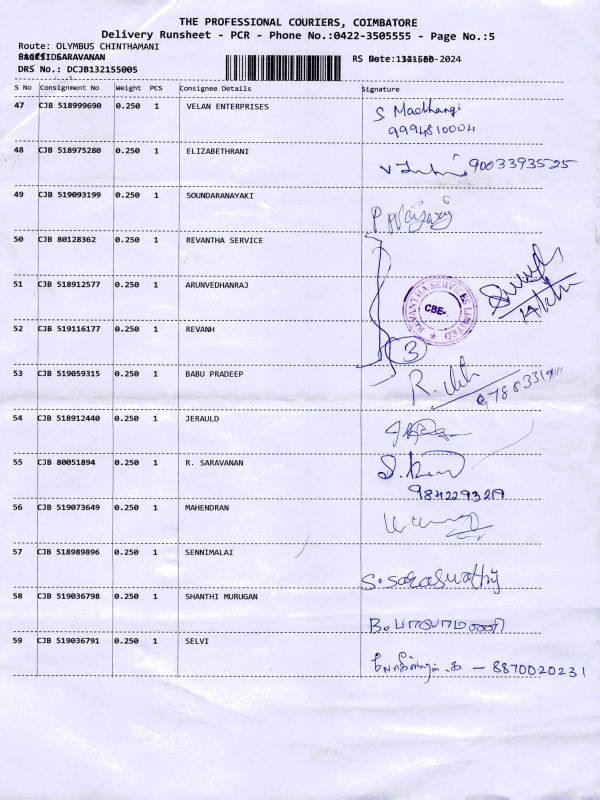 THE PROFESSIONAL COURIERS, COIMBATORE
Delivery Runsheet - PCR - Phone No.:0422-3505555 - Page No.:5
Route: OLYMBUS CHINTHAMANI
SARAVANAN
RS Note: -2024
DRS No.: DCJB132155005
S No Consignment No Weight PCS Consignee Details Signature
47 CJB 518999690 0.250 1 VELAN ENTERPRISES S Madhangi
9994810004
48 CJB 518975280 0.250 1 ELIZABETHRANI 9003393525
49 CJB 519093199 0.250 1 SOUNDARANAYAKI
50 CJB 80128362 0.250 1 REVANTHA SERVICE
51 CJB 518912577 0.250 1 ARUNVEDHANRAJ
REVANTHA SERVICES LIMITED
CBE-
52 CJB 519116177 0.250 1 REVANH
3
53 CJB 519059315 0.250 1 BABU PRADEEP
54 CJB 518912440 0.250 1 JERAULD
55 CJB 80051894 0.250 1 R. SARAVANAN
9842293219
56 CJB 519073649 0.250 1 MAHENDRAN
57 CJB 518989896 0.250 1 SENNIMALAI S. Saraswathy
58 CJB 519036798 0.250 1 SHANTHI MURUGAN B. பாலாமணி
59 CJB 519036791 0.250 1 SELVI - 8870020231